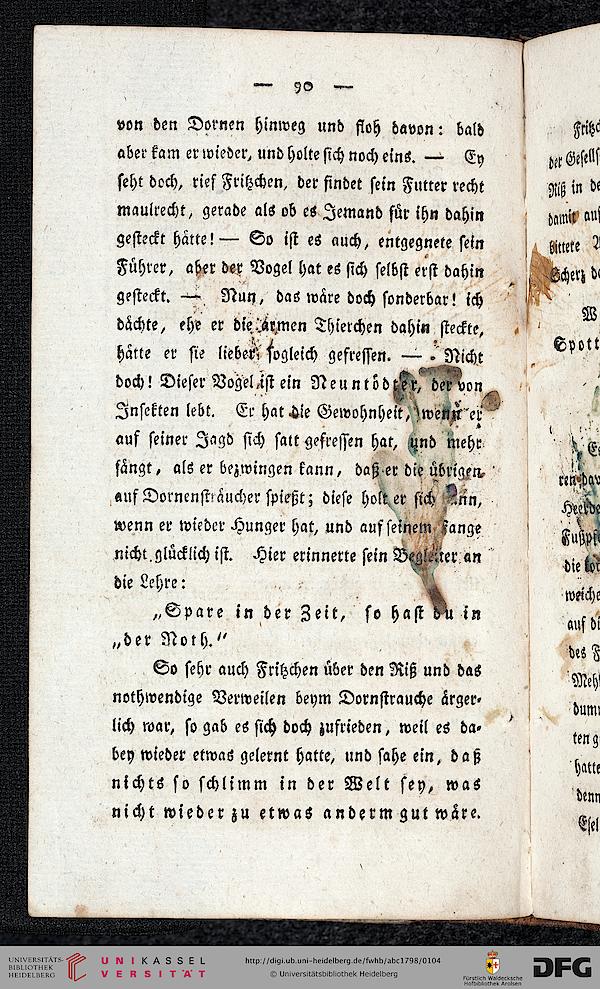 — 90 —
von den Dornen hinweg und floh davon: bald
aber kam er wieder, und holte sich noch eins. — Ey
seht doch, rief Fritzchen, der findet sein Futter recht
maulrecht, gerade als ob es Jemand für ihn dahin
gesteckt hätte! — So ist es auch, entgegnete sein
Führer, aber der Vogel hat es sich selbst erst dahin
gesteckt. — Nun, das wäre doch sonderbar! ich
dächte, ehe er die armen Thierchen dahin steckte,
hätte er sie lieber sogleich gefressen. — Nicht
doch! Dieser Vogel ist ein Neuntödter, der von
Insekten lebt. Er hat die Gewohnheit, wenn er
auf seiner Jagd sich satt gefressen hat, und mehr
fängt, als er bezwingen kann, daß er die übrigen
auf Dornensträucher spießt; diese holt er sich
wenn er wieder Hunger hat, und auf seinem Fange
nicht glücklich ist. Hier erinnerte sein Begleiter an
die Lehre:
„Spare in der Zeit, so hast du in
„der Noth.“
So sehr auch Fritzchen über den Riß und das
nothwendige Verweilen beym Dornstrauche ärger-
lich war, so gab es sich doch zufrieden, weil es da-
bey wieder etwas gelernt hatte, und sahe ein, daß
nichts so schlimm in der Welt sey, was
nicht wieder zu etwas anderm gut wäre.
der
Riß in
damit auf
Scherz
Spott
die
weiche
auf
des
hatte
UNIVERSITÄTS-
BIBLIOTHEK
HEIDELBERG
UNIKASSEL
VERSITÄT
http://digi.ub.uni-heidelberg.de/fwhb/abc1798/0104
© Universitätsbibliothek Heidelberg
Fürstlich Waldecksche
Hofbibliothek Arolsen
DFG